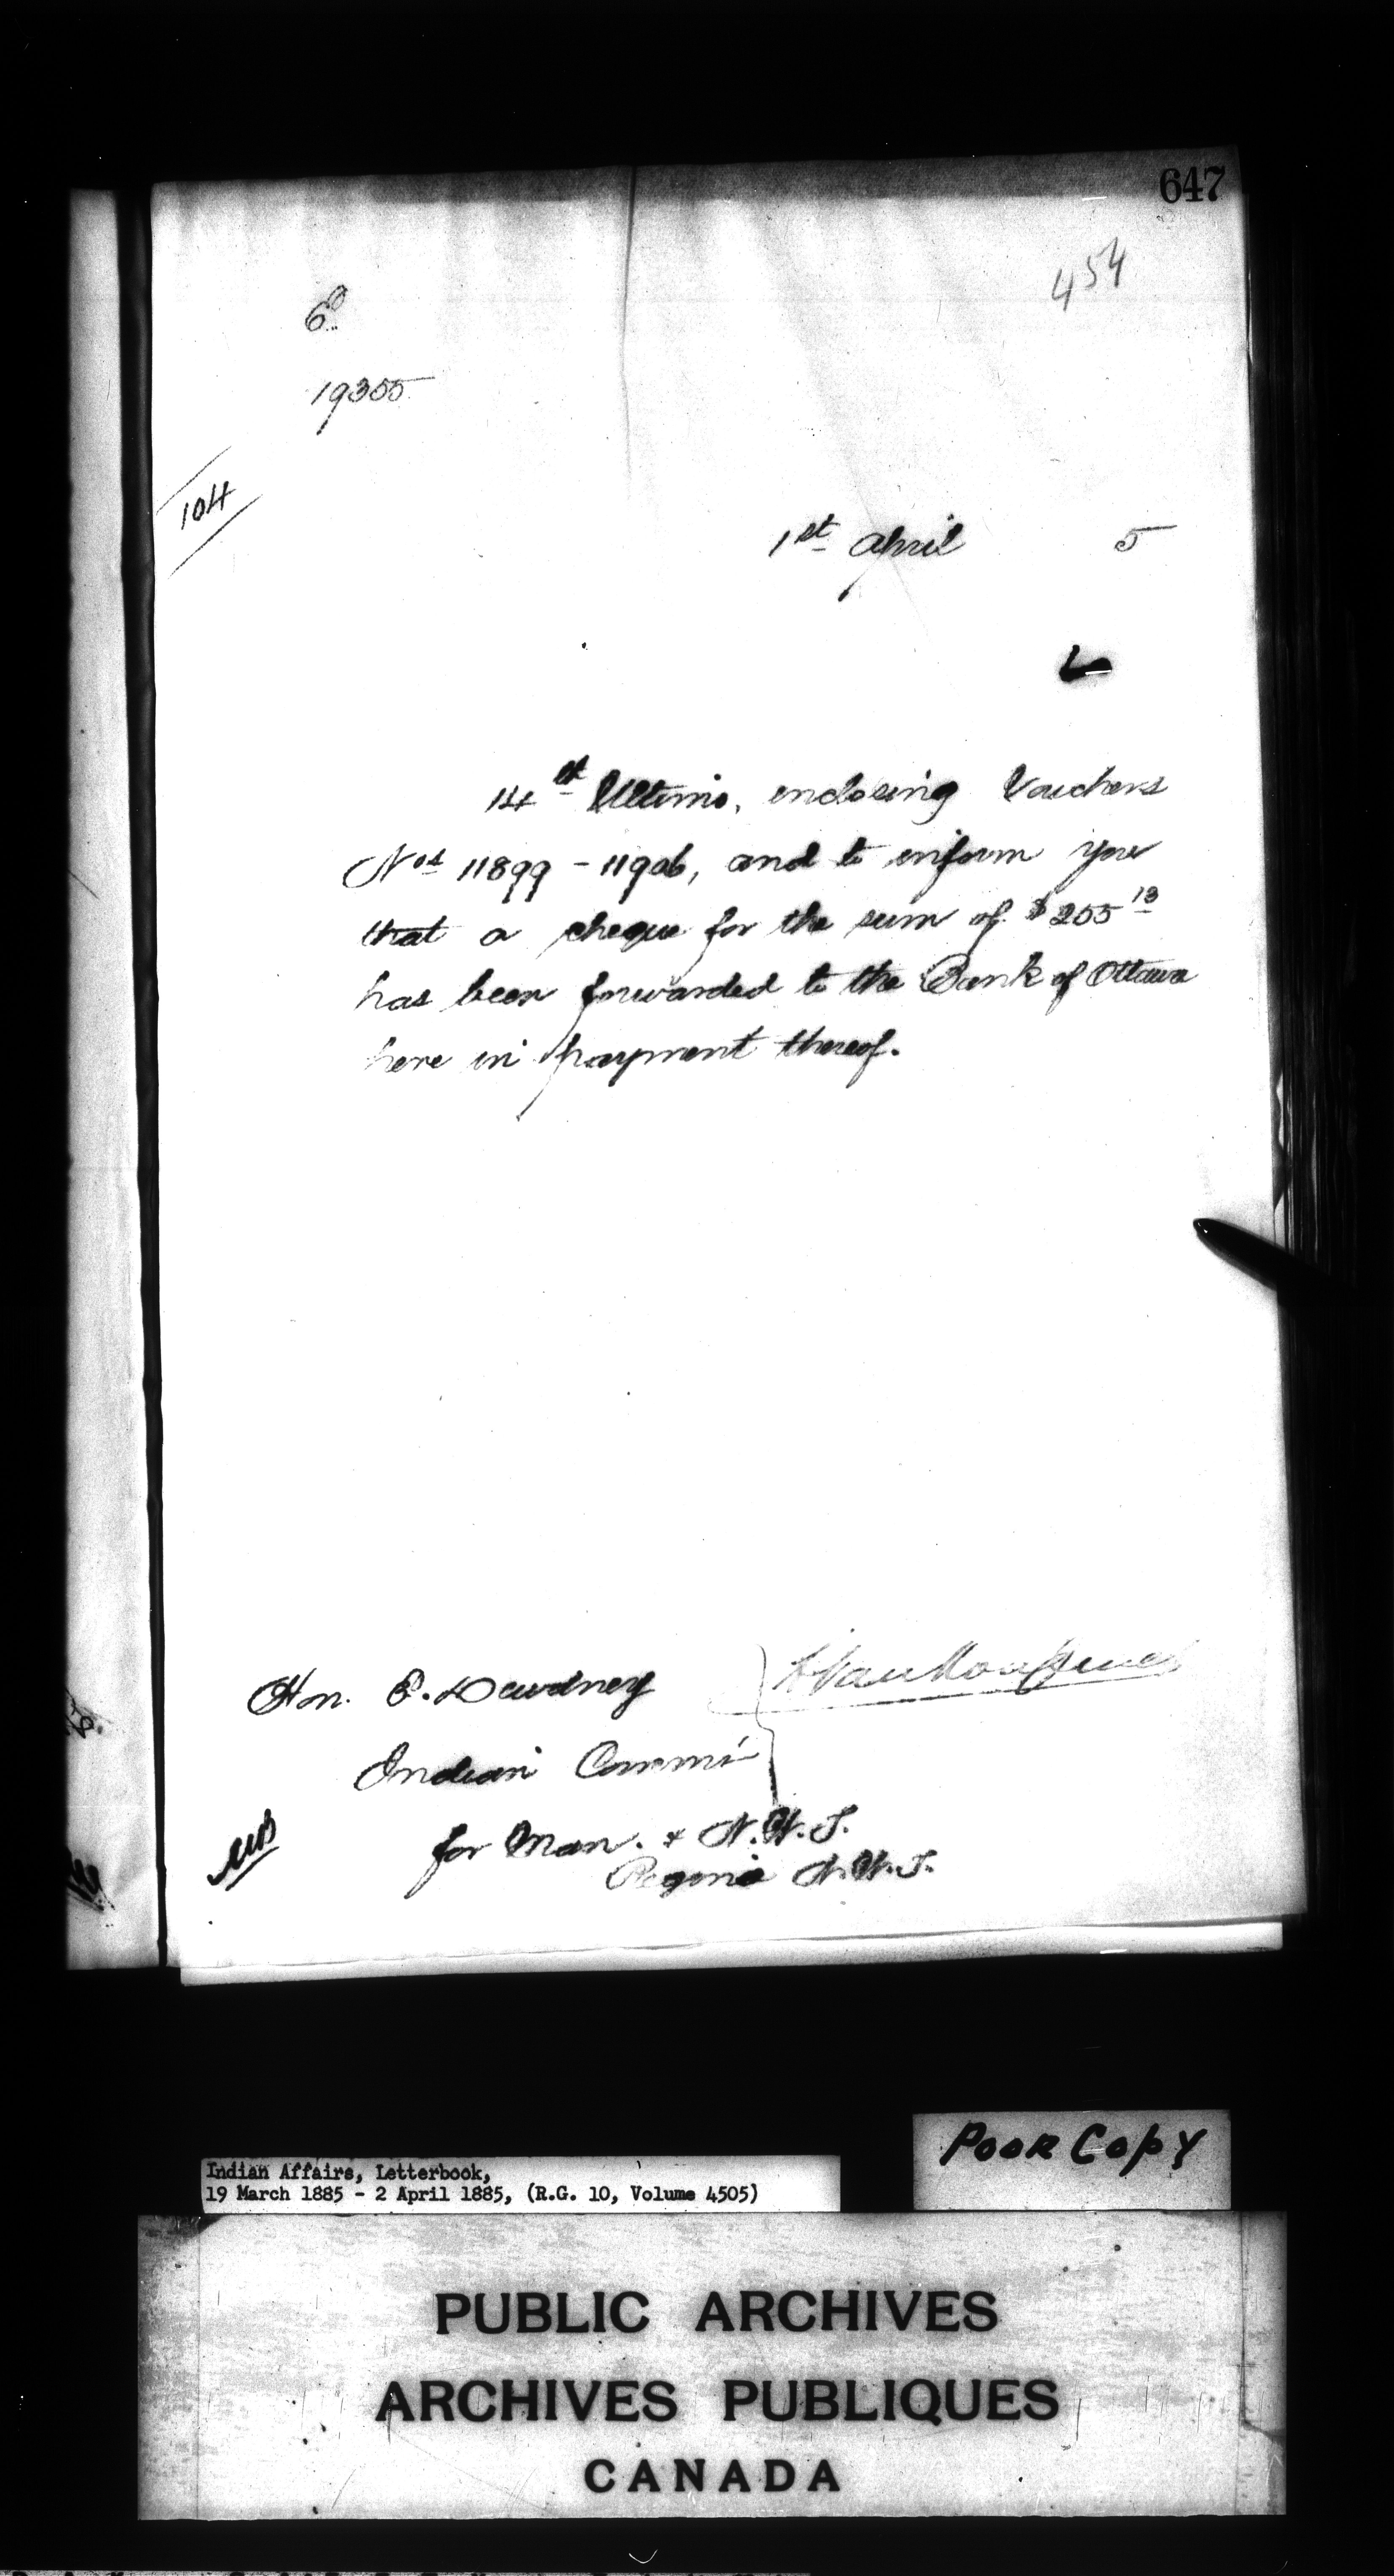 647
454
19355
104
1st April 5
L
14th Ultimo, enclosing Vouchers
Nos 11899 - 11906, and to inform you
that a cheque for the sum of $255 13
has been forwarded to the Bank of Ottawa
here in payment thereof.
Hon. E. Dewdney
L. Vankoughnet
Indian Commr
for Man. & N.W.T.
Regina N.W.T.
POOR COPY
Indian Affairs, Letterbook,
19 March 1885 - 2 April 1885, (R.G. 10, Volume 4505)
PUBLIC ARCHIVES
ARCHIVES PUBLIQUES
CANADA